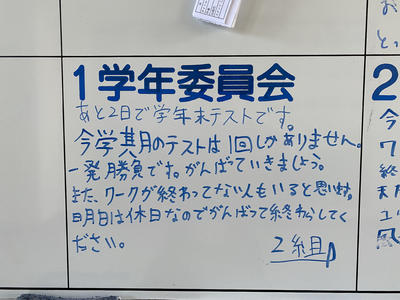 1学年委員会
あと2日で学年末テストです。
今学期のテストは1回しかありません。
一発勝負です。がんばっていきましょう。
また、ワークが終わってない人もいると思います。
明日は休日なのでがんばって終わらしてく
ださい。
2組
2